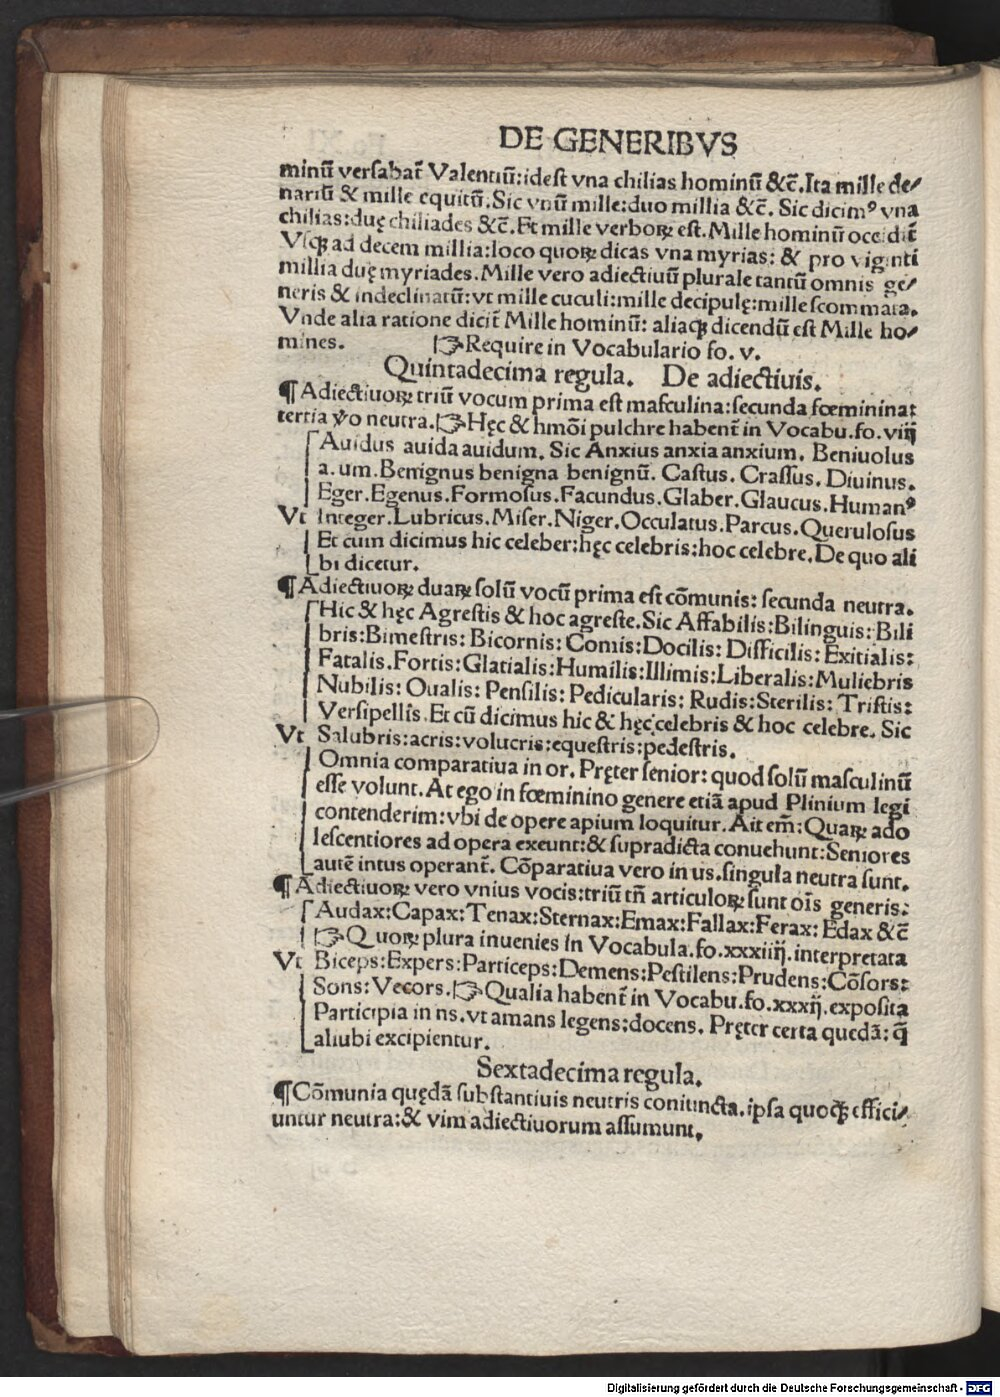 DE GENERIBVS
minū versabat᷑ Valentiū:idest vna chilias hominū &c̄.Ita mille de⸗
nariū & mille equitū.Sic vnū mille:duo millia &c̄. Sic dicimꝰ vna
chilias:duę chiliades &c̄.Et mille verboꝝ est.Mille hominū occidit᷑
Vsqꝫ ad decem millia:loco quoꝝ dicas vna myrias: & pro viginti
millia duę myriades.Mille vero adiectiuū plurale tantū omnis ge⸗
neris & indeclinatū:vt mille cuculi:mille decipulę:mille scommata.
Vnde alia ratione dicit᷑ Mille hominū: aliaqꝫ dicendū est Mille ho⸗
mines. ☞Require in Vocabulario fo. v.
Quintadecima regula. De adiectiuis.
¶Adiectiuoꝝ triū vocum prima est masculina:secunda fœminina:
tertia v̊o neutra.☞Hęc & hmōi pulchre habent᷑ in Vocabu.fo.viij
Auidus auida auidum. Sic Anxius anxia anxium. Beniuolus
a.um.Benignus benigna benignū. Castus. Crassus. Diuinus.
Eger.Egenus.Formosus.Facundus.Glaber.Glaucus.Humanꝰ
Vt Integer.Lubricus.Miser.Niger.Occulatus.Parcus.Querulosus
Et cum dicimus hic celeber:hęc celebris:hoc celebre.De quo ali
bi dicetur.
¶Adiectiuoꝝ duaꝝ solū vocū prima est cōmunis: secunda neutra.
Hic & hęc Agrestis & hoc agreste.Sic Affabilis:Bilinguis:Bili
bris:Bimestris: Bicornis: Comis:Docilis: Difficilis: Exitialis:
Fatalis.Fortis:Glatialis:Humilis:Illimis:Liberalis:Muliebris
Nubilis: Oualis: Pensilis: Pedicularis: Rudis:Sterilis: Tristis:
Versipellis.Et cū dicimus hic & hęc celebris & hoc celebre. Sic
Vt Salubris:acris:volucris:equestris:pedestris.
Omnia comparatiua in or. Pręter senior: quod solū masculinū
esse volunt.At ego in fœminino genere etiā apud Plinium legi
contenderim:vbi de opere apium loquitur.Ait em̄:Quaꝝ ado
lescentiores ad opera exeunt:& supradicta conuehunt:Seniores
autē intus operant᷑. Cōparatiua vero in us.singula neutra sunt.
¶Adiectiuoꝝ vero vnius vocis:triū tn̄ articuloꝝ sunt oīs generis:
Audax:Capax:Tenax:Sternax:Emax:Fallax:Ferax: Edax &c̄
☞Quoꝝ plura inuenies in Vocabula.fo.xxxiiij.interpretata
Vt Biceps:Expers:Particeps:Demens:Pestilens:Prudens:Cōsors:
Sons:Vecors.☞Qualia habent᷑ in Vocabu.fo.xxxij.exposita
Participia in ns.vt amans legens:docens. Pręter certa quedā: q̄
aliubi excipientur.
Sextadecima regula.
¶Cōmunia quędā substantiuis neutris coniuncta.ipsa quoqꝫ effici⸗
untur neutra:& vim adiectiuorum assumunt.
Digitalisierung gefördert durch die Deutsche Forschungsgemeinschaft - DFG